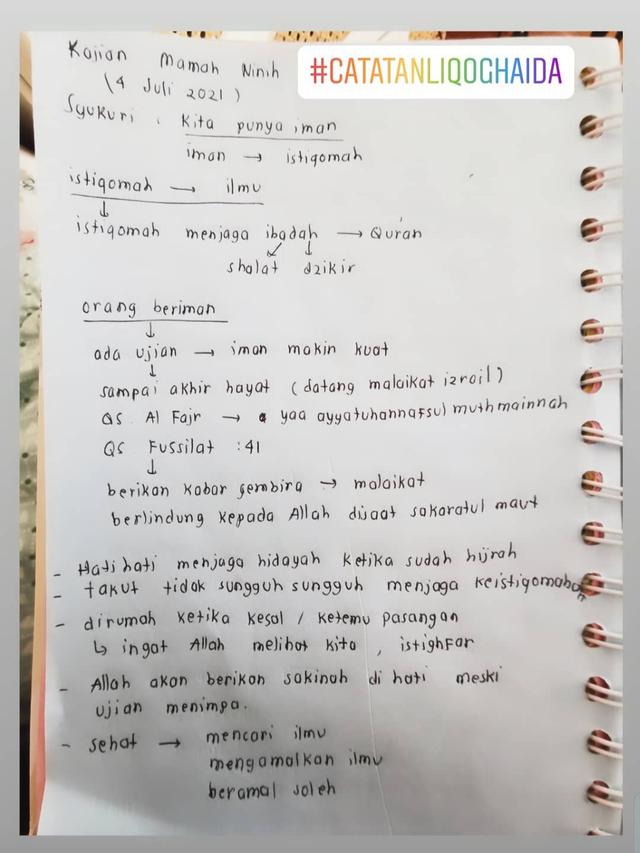 Kajian Mamah Ninih
#CATATANLIQOGHAIDA
(4 Juli 2021)
Syukuri : Kita punya iman
iman → istiqomah
istiqomah → ilmu
↓
istiqomah menjaga ibadah → Qur'an
↙ ↓
shalat dzikir
orang beriman
↓
ada ujian → iman makin kuat
↓
sampai akhir hayat (datang malaikat izrail)
QS Al Fajr → yaa ayyatuhannafsul muthmainnah
QS Fussilat : 41
↓
berikan kabar gembira → malaikat
berlindung kepada Allah disaat sakaratul maut
- Hati hati menjaga hidayah ketika sudah hijrah
- takut tidak sungguh sungguh menjaga keistiqomahan
- dirumah ketika kesal / ketemu pasangan
↳ ingat Allah melihat kita , istighfar
- Allah akan berikan sakinah di hati meski
ujian menimpa.
- sehat → mencari ilmu
mengamalkan ilmu
beramal soleh